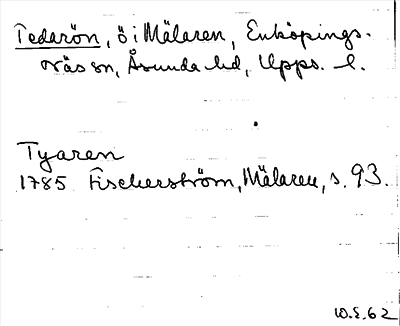 Tedarön, ö i Mälaren, Enköpings-
Näs sn, Åsunda hd, Upps. l.
Tyaren
1785 Fischerström, Mälaren, s. 93.
W.E.62